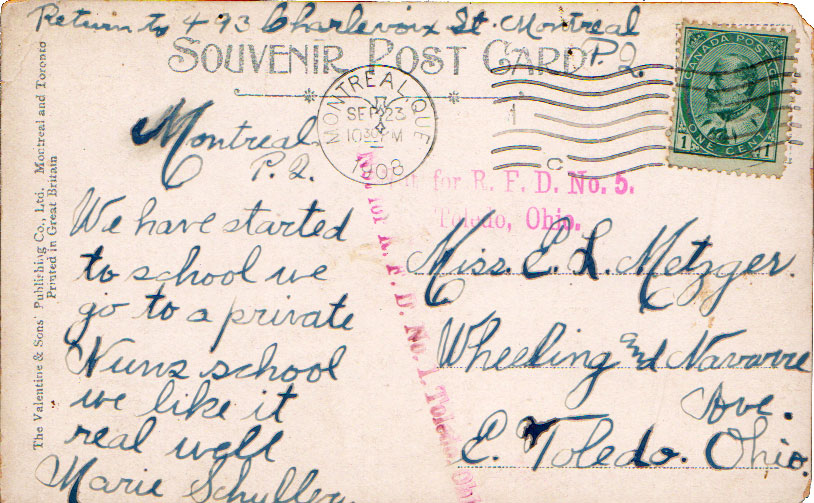 Return to 493 Charlevoix St. Montreal
P. Q.
SOUVENIR POST CARD
CANADA POSTAGE
ONE CENT
1 1
MONTREAL, QUE
SEP 23
1908
C
The Valentine & Sons' Publishing Co., Ltd. Montreal and Toronto
Printed in Great Britain
for R. F. D. No. 5.
Toledo, Ohio.
for R. F. D. No. 1. Toledo, Ohio
Montreal
P. Q.
We have started
to school we
go to a private
Nuns school
we like it
real well
Marie Schuller.
Miss. E. L. Metzger.
Wheeling and Navarre
Ave.
E. Toledo. Ohio.